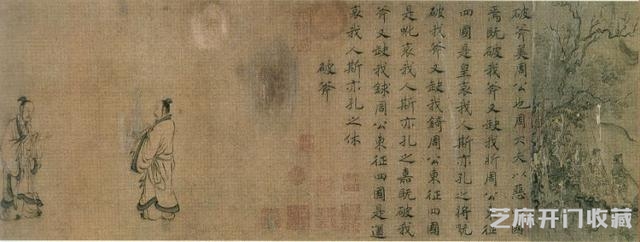 破斧美周公也周大夫以惡四國
焉既破我斧又缺我斨周公東征
四國是皇哀我人斯亦孔之將既
破我斧又缺我錡周公東征四國
是吪哀我人斯亦孔之嘉既破我
斧又缺我銶周公東征四國是遒
哀我人斯亦孔之休
破斧
芝麻开门收藏